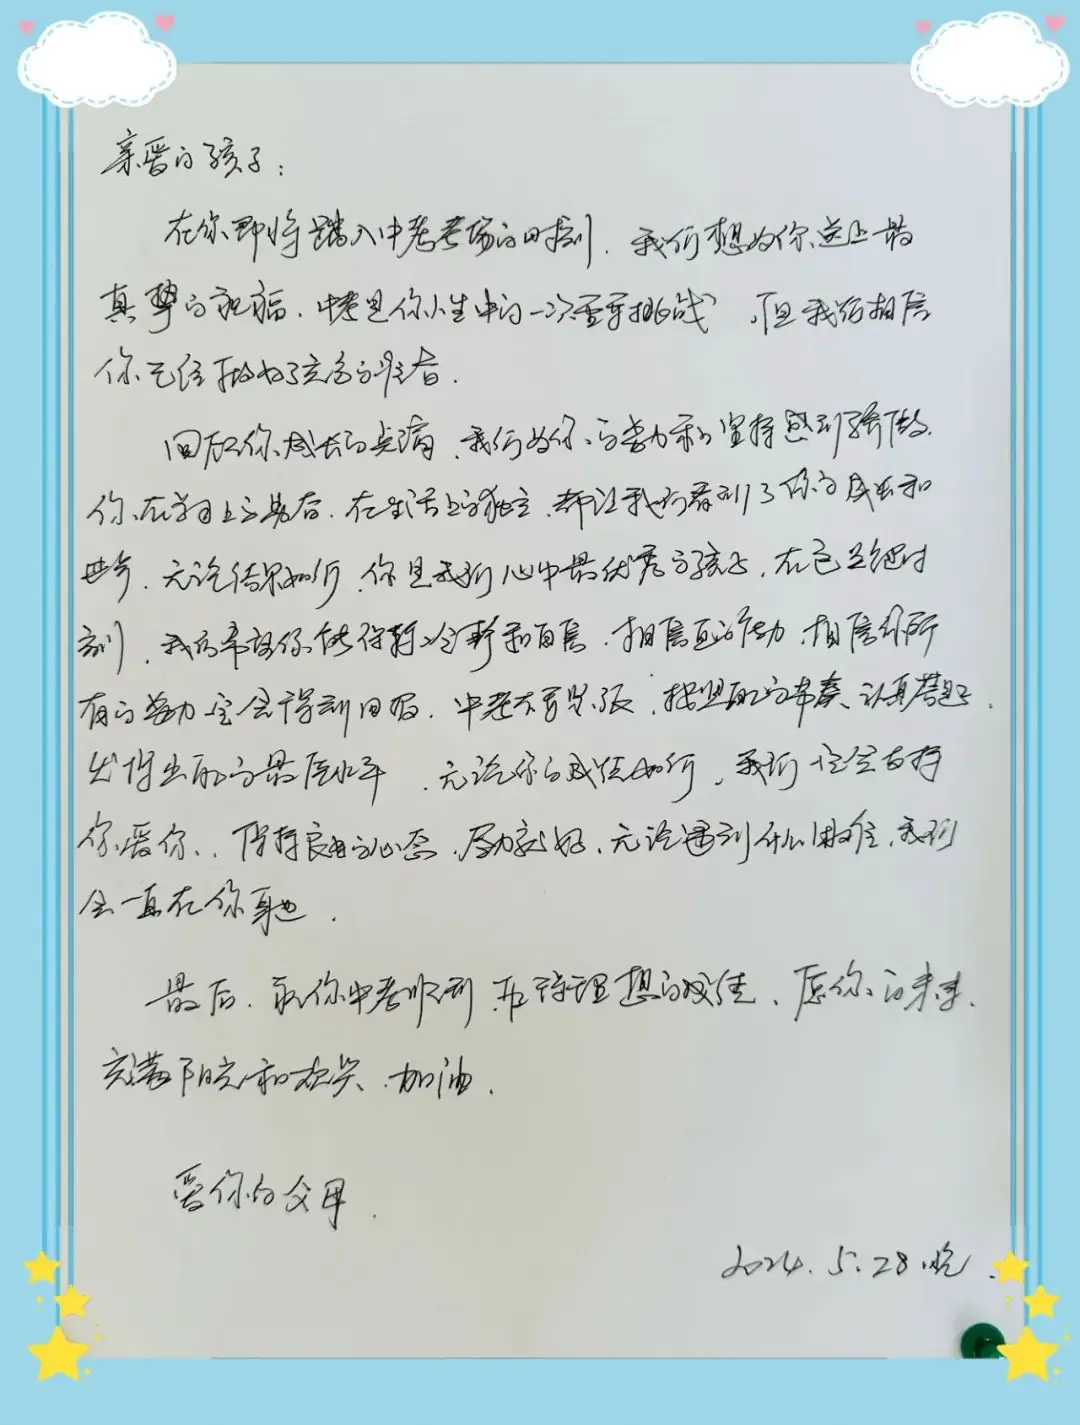 亲爱的孩子：
在你即将踏入中考考场的时刻，我们想为你送上最
真挚的祝福。中考是你人生中的一次重要挑战，但我们相信
你已经做好了充分的准备。
回顾你成长的点滴，我们为你的努力和坚持感到骄傲。
你在学习上的勤奋，在生活上的独立，都让我们看到了你的成长和
进步。无论结果如何，你是我们心中最优秀的孩子，在这关键时
刻，我们希望你能保持冷静和自信，相信自己的能力，相信你所
有的努力定会得到回报。中考不要紧张，按照自己的节奏，认真答题，
发挥出自己的最佳水平，无论你的成绩如何，我们一定会支持
你爱你，保持良好的心态，尽力就好，无论遇到什么困难，我们
会一直在你身边。
最后，祝你中考顺利，取得理想的成绩，愿你的未来，
充满阳光和欢笑，加油。
爱你的父母
2024.5.28晚